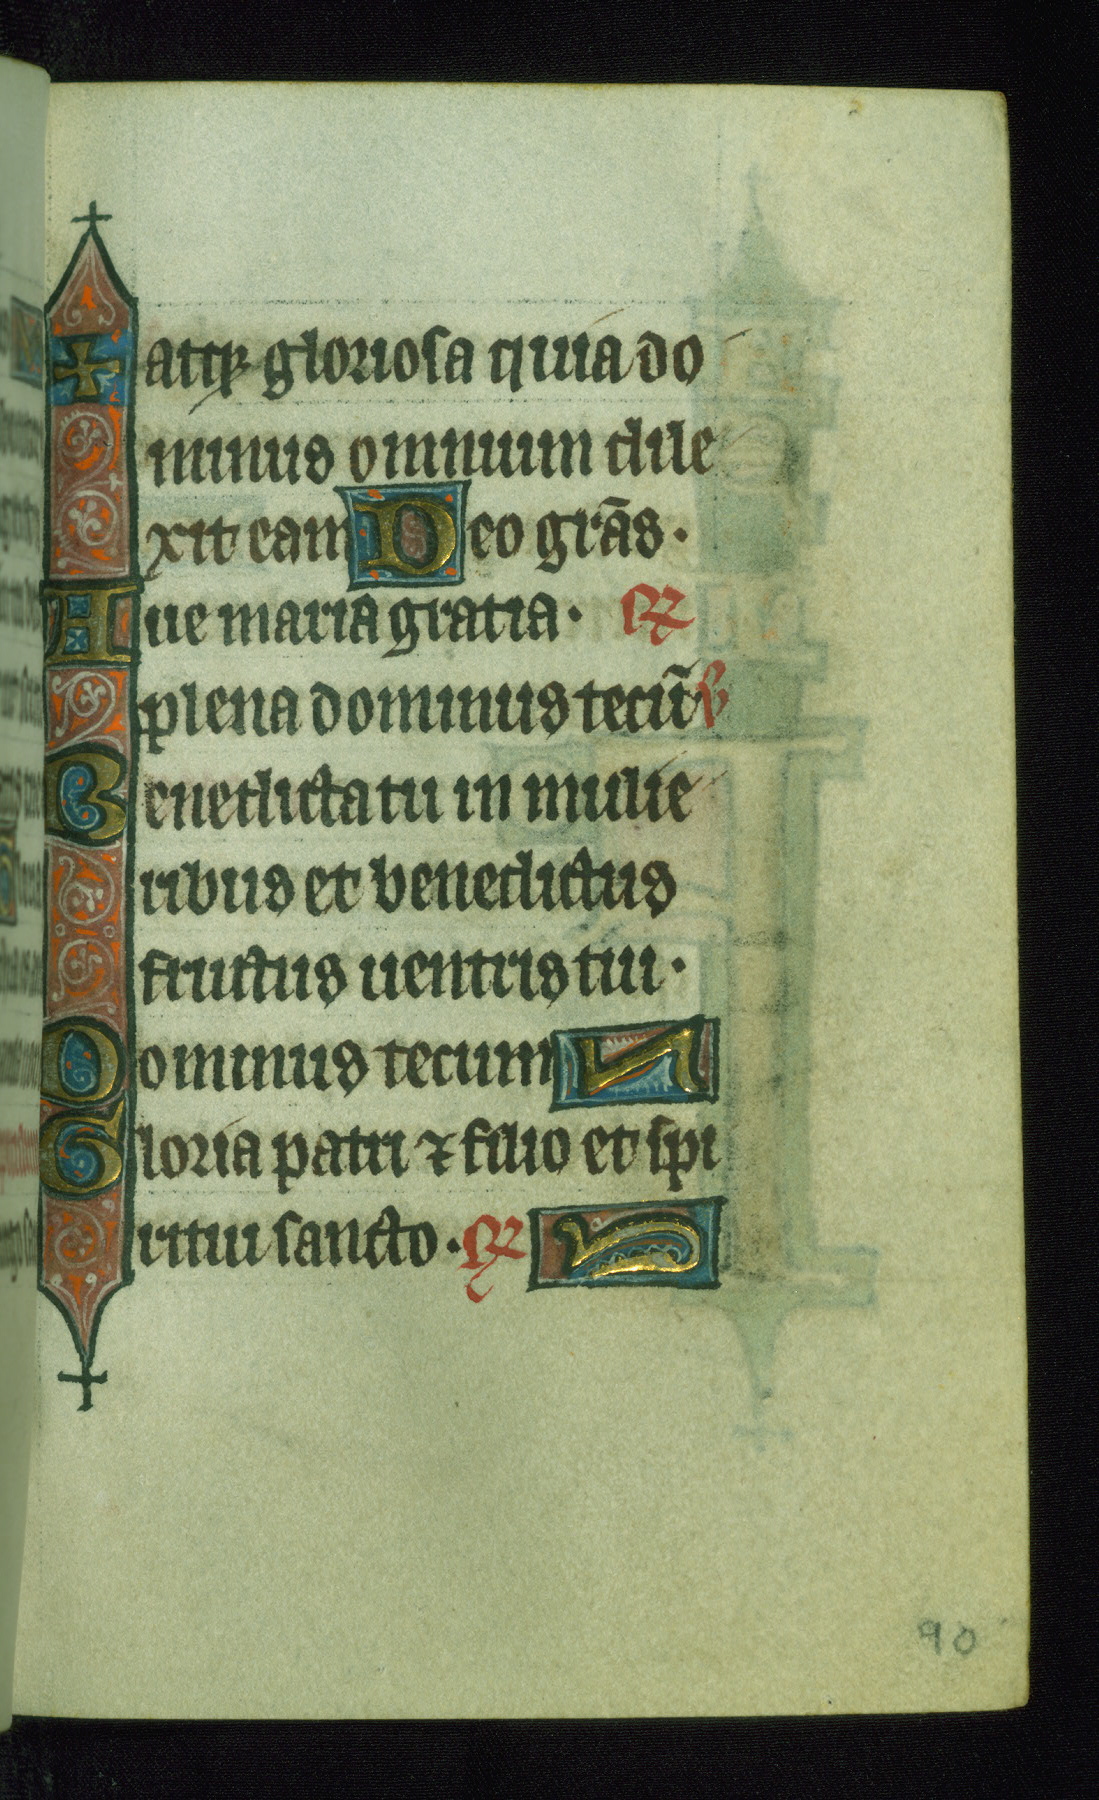 atq; gloriosa quia do
minus omnium dile
xit eam Deo grãs.
Aue maria gratia. ℟
plena dominus tecũ ℣
Benedicta tu in mulie
ribus et benedictus
fructus uentris tui.
Dominus tecum
Gloria patri ⁊ filio et spi
ritui sancto. ℟
90